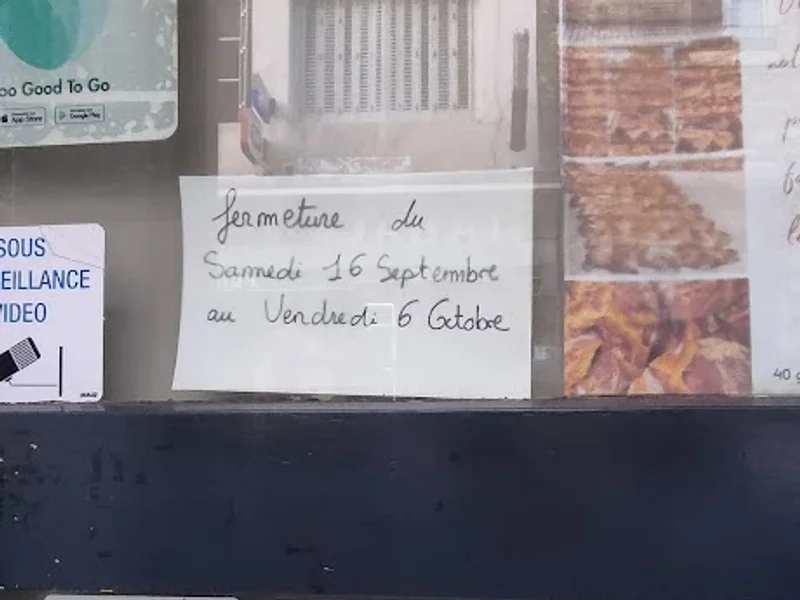 Too Good To Go
App Store Google Play
fermeture du
Samedi 16 Septembre
au Vendredi 6 Octobre
SOUS
EILLANCE
VIDEO
40 g